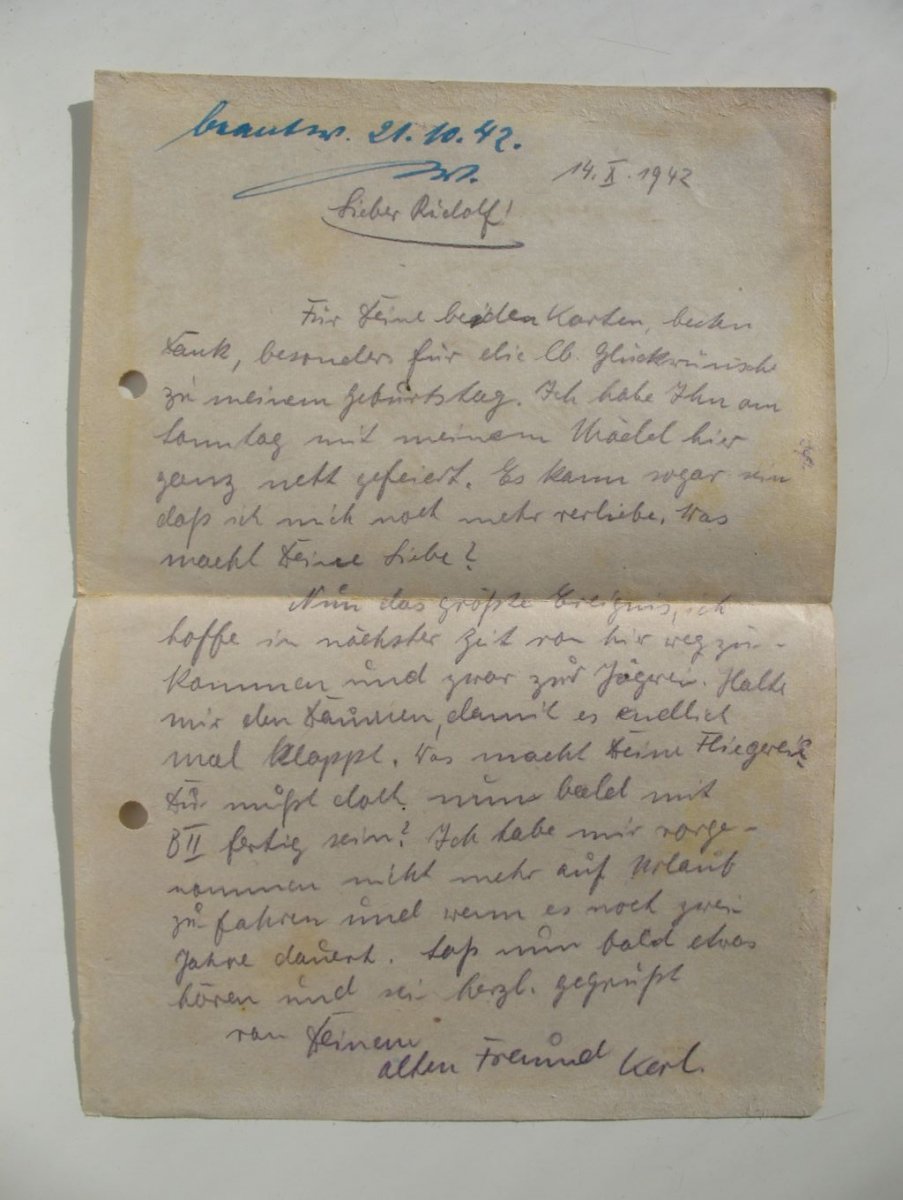 beantw. 21.10.42.
14.X.1942
Lieber Rudolf!
Für Deine beiden Karten, besten
Dank, besonders für die lb. Glückwünsche
zu meinem Geburtstag. Ich habe Ihn am
Sonntag mit meinem Mädel hier
ganz nett gefeiert. Es kann sogar sein
daß ich mich noch mehr verliebe. Was
macht Deine Liebe?
Nun das größte Ereignis, ich
hoffe in nächster Zeit von hier wegzu-
kommen und zwar zur Jägerei. Halte
mir den Daumen, damit es endlich
mal klappt. Was macht Deine Fliegerei?
Du mußt doch nun bald mit
BII fertig sein? Ich habe mir vorge-
nommen nicht mehr auf Urlaub
zu fahren und wenn es noch zwei
Jahre dauert. Laß nun bald etwas
hören und sei herzl. gegrüßt
von Deinem
alten Freund Karl.